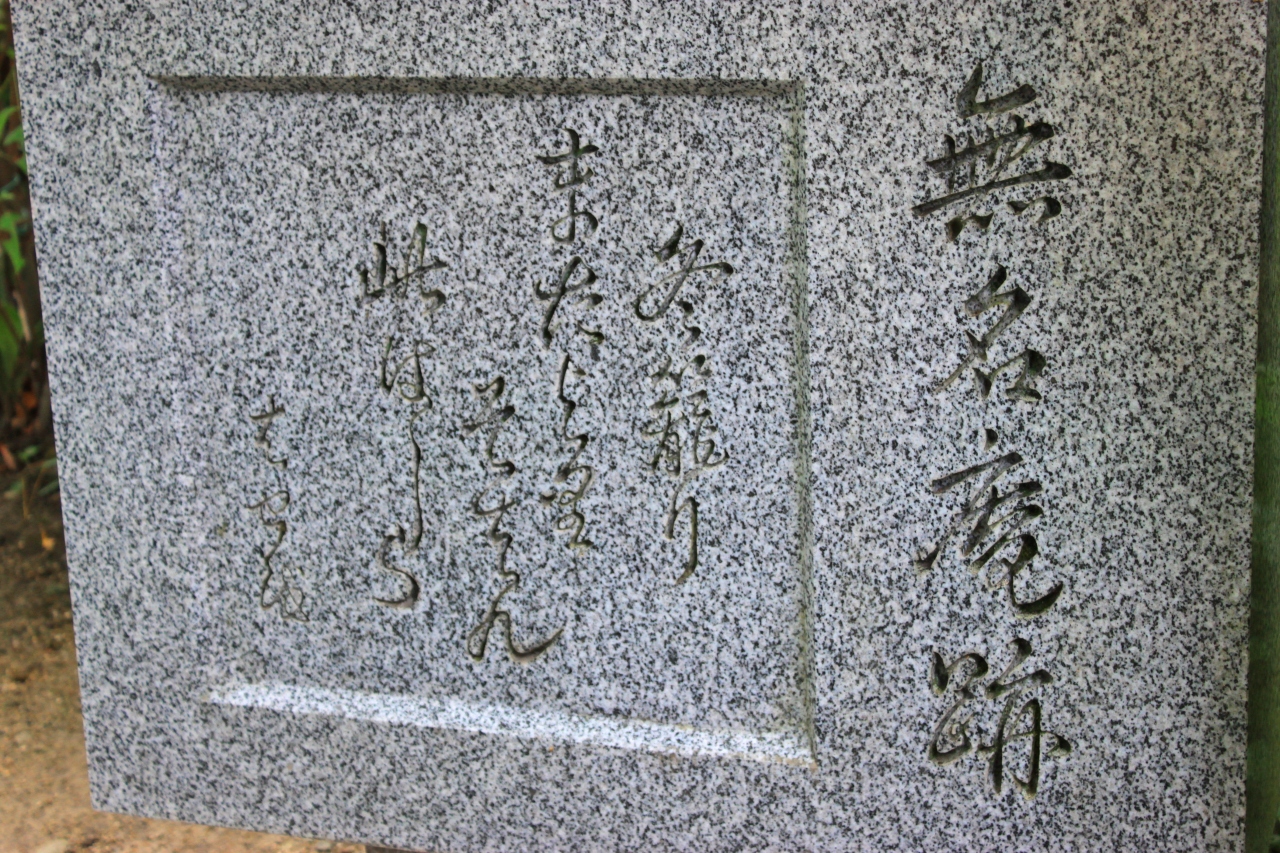 無名庵跡
冬籠り
またより
そはん
此はしら
はせを